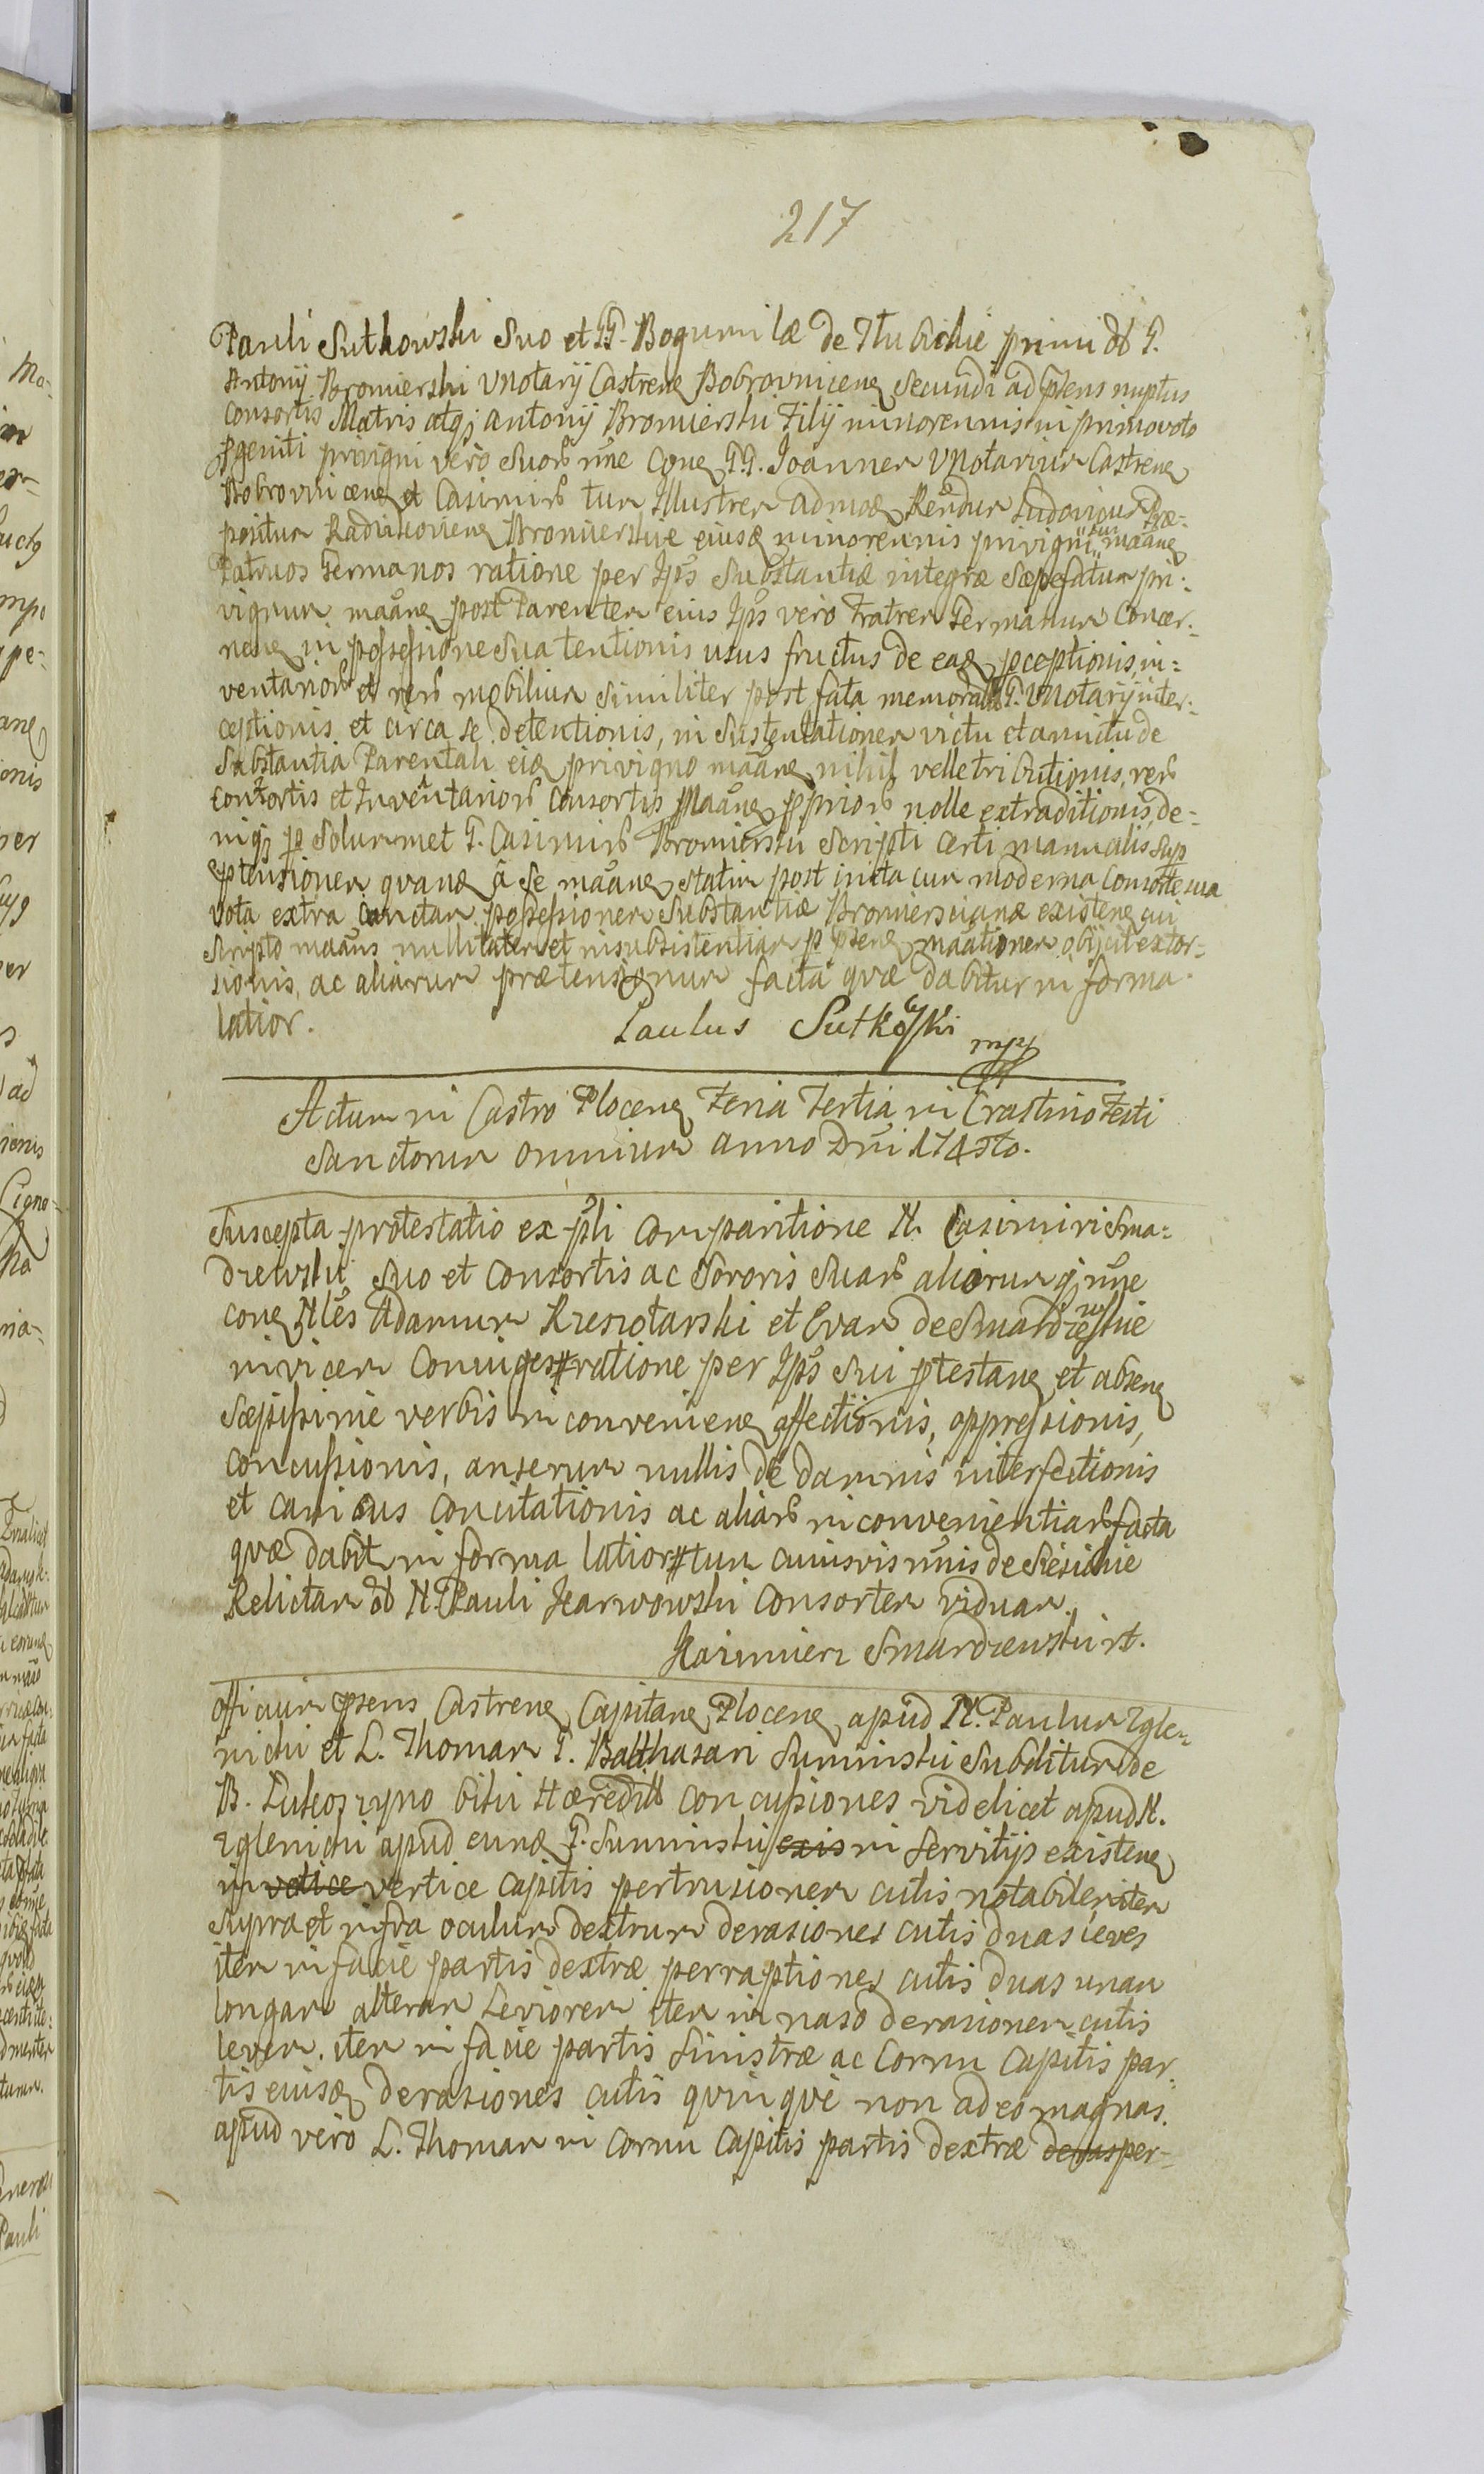 217
Pauli Sutkowski Suo et GG. Bogumilæ de Tłubickie primi olb G.
Antonij Bromierski VNotarij Castrene Bobrovnicene Secundi ad pñs nuptus
Consortis Matris atq; Antonij Bromierski Filij minorennis in primovoto
pgeniti privigni vero Suorb nñe Cone GG. Joannem VNotarium Castrene
Bobrovnicene et Casimirb tum Illustrem admoe Rendum Ludovicum Præ-
positum Radzikoviene Bromierskie eiusde minorennis privigni sui maane
Patruos Germanos ratione per Ips Substantiæ integræ Sæpefatum pri-
vignum maane post Parentem eius Ips vero Fratrem Germanum Concer-
nene in possessione Sua tentionis usus fructus de eade pceptionis, in-
ventariorb et rerb mobilium Similiter post fata memorati G. VNotarij inter-
ceptionis et circa se detentionis, in Sustentationem victu et amictu de
Substantia Parentali eide privigno maane nihil velle tributionis, rerb
Consortis et Inventariorb Consortis Maane ppriorb nolle extraditionis, de-
niq; p Solummet G. Casimirb Bromierski Scripti Certi manualis Sup
ptensionem quande â Se maane statim post inita cum moderna Consorte sua
vota extra Cunctam possessionem Substantiæ Bromiersciane existene cui
Scripto maans nullitatem et insubsistentiam p psene maationem objicit extor-
sionis, ac aliarum prætensionum facta quæ dabitur in forma
latior.
Paulus Sutkowski mpp
Actum in Castro Plocene Feria Tertia in Crastino Festi
Sanctorum omnium anno Dni 174sto.
Suscepta protestatio ex pli Comparitione N. Casimiri Sma-
drewski Suo et Consortis ac Sororis Suarb aliorum q; nñe
cone Nles Adamum Krzesotarski et Evam de Smardzewskie
invicem Coniuges # ratione per Ips Sui ptestane et absene
Sæpissime verbis inconveniene affectionis, oppressionis,
Concussionis, anserum nullis de damnis interfectionis
et canibus Concitationis ac aliarb inconvenientiarb facta
quæ dabit in forma latior # tum cuiusvis nñis de
Relictam olb N. Pauli Karwowski Consortem viduam.
Kazimierz Smardzewski rt.
Officium psens Castrene Capitane Plocene apud N. Paulum Zgle-
nicki et L. Thomam G. Balthasari Suminski Subditum de
B. Hæredib Concussiones videlicet apud N.
Zglenicki apud eunde G. Suminski exis in Servitijs existene
in vetice vertice Capitis pertrusionem cutis notabilem item
Supra et infra oculum dextrum derasiones cutis duas leves
item in facie partis dextræ perraptiones cutis duas unam
longam alteram Leviorem item in naso derasionem cutis
levem. item in facie partis Sinistræ ac Cornu Capitis par-
tis eiusde derasiones cutis quinque non adeo magnas.
apud vero L. Thomam in Cornu Capitis partis dextræ deras per-